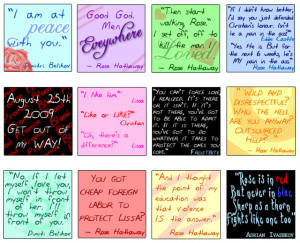 "I am at
peace
with you."
Dimitri Belikov
Good God.
Men
Everywhere
- Rose Hathaway
"Then start
walking, Rose."
I set off, off to
kill the man I
Loved!
- Rose Hathaway
"If I didn't know better,
I'd say you just defended
Christian's honour. Isn't
he a pain in the ass?"
Eddie Castile
"Yes he is. But for
the next 6 weeks, he's
MY pain in the ass!"
Rose Hathaway
August 25th
2009
GET OUT OF
MY WAY!
"I like him"
Lissa
"Like or LIKE?"
Christian
"Oh, there's a
difference?"
Lissa
"YOU CAN'T FORCE
LOVE, I REALIZED. IT'S THERE
OR IT ISN'T. IF IT'S
NOT THERE, YOU'VE GOT
TO BE ABLE TO ADMIT
IT. IF IT IS THERE,
YOU'VE GOT TO DO
WHATEVER IT TAKES TO
PROTECT THE ONES YOU
LOVE."
FROSTBITE
"WILD AND
DISRESPECTFUL?
WHO THE HELL
ARE YOU ANYWAY?
OUTSOURCED
HELP?"
- Rose Hathaway
"No. If I let
myself love you,
I won't throw
myself in front
of her. I'll
throw myself in
front of you."
Dimitri Belikov
YOU GOT
CHEAP FOREIGN
LABOR TO
PROTECT LISSA?
- Rose Hathaway
"And I thought
the point of my
education was
that violence
IS the answer."
- Rose Hathaway
"Rose is in red
But never in blue
Sharp as a thorn
Fights like one too"
ADRIAN IVASHKOV